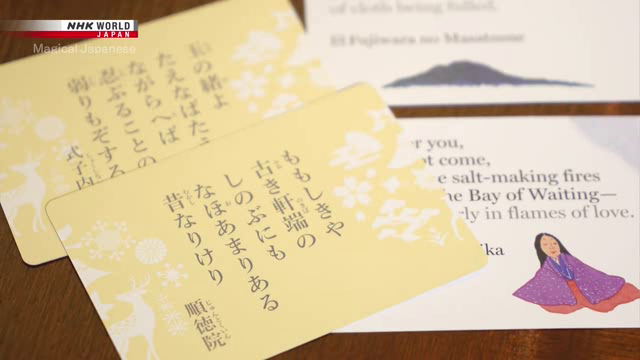 NHK WORLD
JAPAN
Magical Japanese
玉の緒よ
たえなばたえ
ながらへば
忍ぶることの
弱りもぞする
式子内
of cloth being fulled.
Fujiwara no Masatsune
ももしきや
古き軒端の
しのぶにも
なほあまりある
昔なりけり
順徳院
you,
come,
salt-making fires
the Bay of Waiting—
in flames of love.